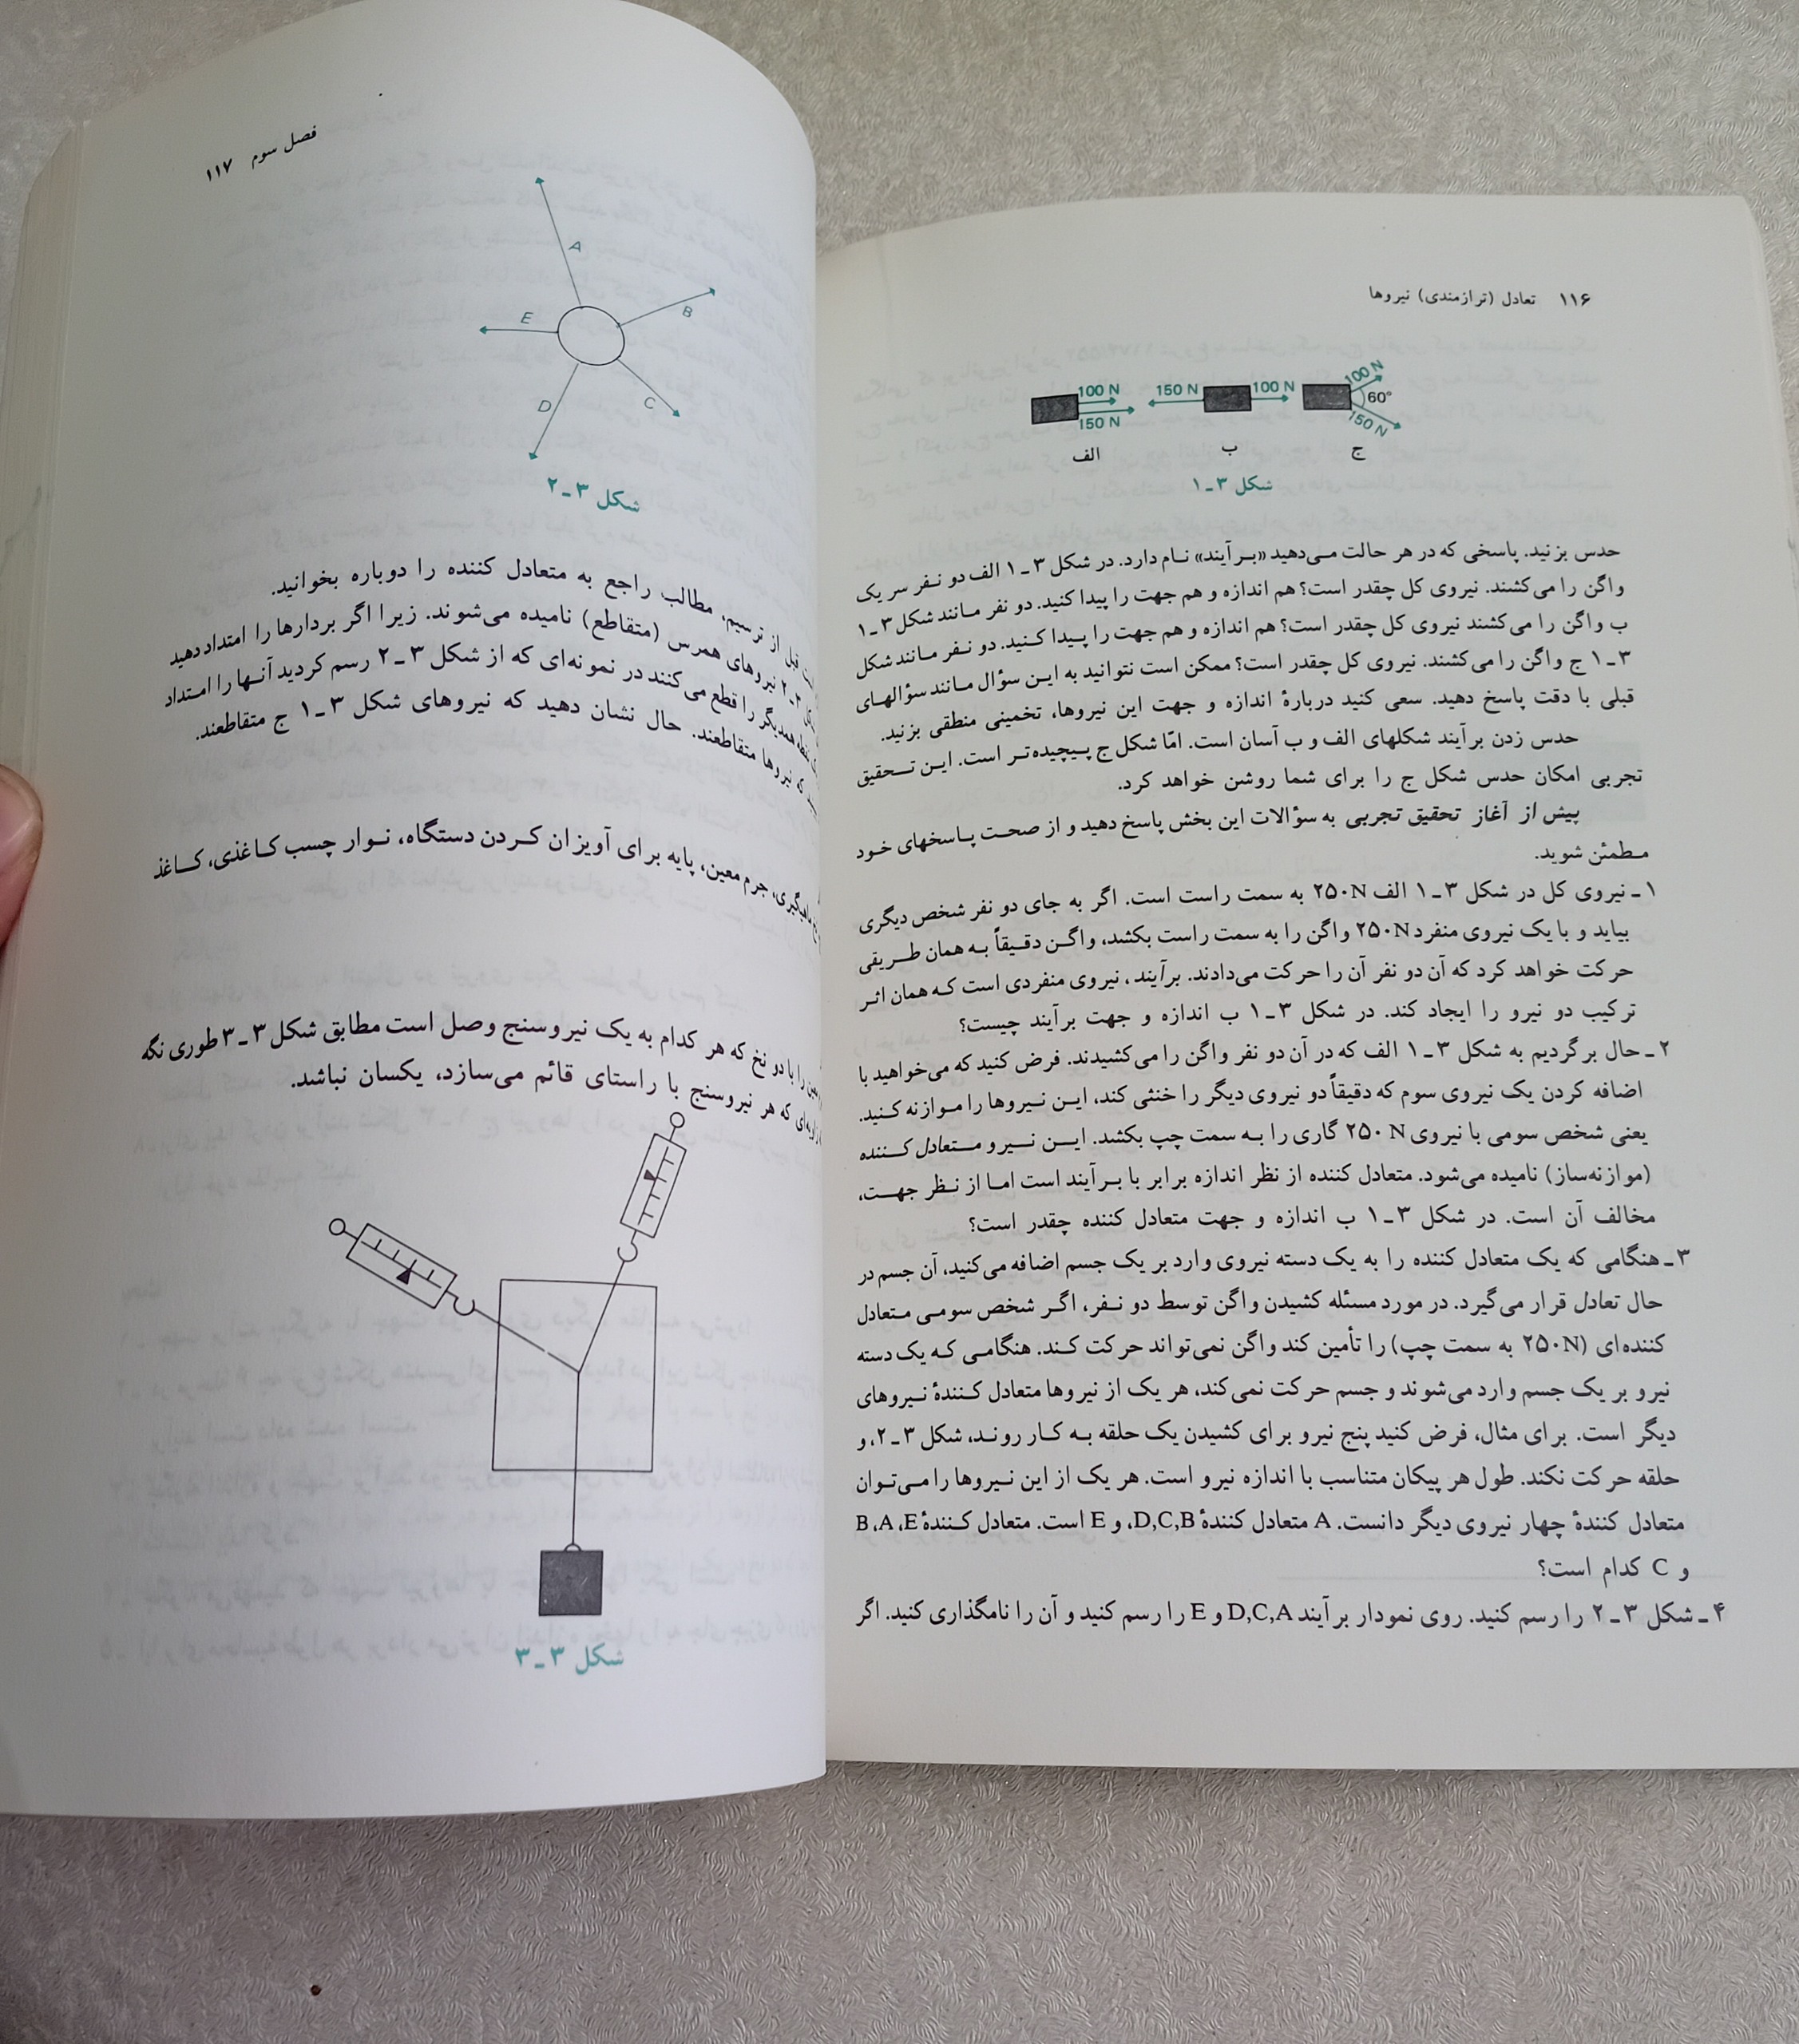 ۱۱۶ تعادل (ترازمندی) نیروها
100 N
150 N
الف
150 N
100 N
ب
100 N
60°
150 N
ج
شکل ۳ـ۱
حدس بزنید. پاسخی که در هر حالت می‌دهید «برآیند» نام دارد. در شکل ۳ـ۱ الف دو نفر سر یک
واگن را می‌کشند. نیروی کل چقدر است؟ هم اندازه و هم جهت را پیدا کنید. دو نفر مانند شکل ۳ـ۱
ب واگن را می‌کشند نیروی کل چقدر است؟ هم اندازه و هم جهت را پیدا کنید. دو نفر مانند شکل
۳ـ۱ ج واگن را می‌کشند. نیروی کل چقدر است؟ ممکن است نتوانید به این سؤال مانند سؤالهای
قبلی با دقت پاسخ دهید. سعی کنید دربارهٔ اندازه و جهت این نیروها، تخمینی منطقی بزنید.
حدس زدن برآیند شکلهای الف و ب آسان است. امّا شکل ج پیچیده‌تر است. این تحقیق
تجربی امکان حدس شکل ج را برای شما روشن خواهد کرد.
پیش از آغاز تحقیق تجربی به سؤالات این بخش پاسخ دهید و از صحت پاسخهای خود
مطمئن شوید.
۱ـ نیروی کل در شکل ۳ـ۱ الف ۲۵۰N به سمت راست است. اگر به جای دو نفر شخص دیگری
بیاید و با یک نیروی منفرد ۲۵۰N واگن را به سمت راست بکشد، واگن دقیقاً به همان طریقی
حرکت خواهد کرد که آن دو نفر آن را حرکت می‌دادند. برآیند، نیروی منفردی است که همان اثر
ترکیب دو نیرو را ایجاد کند. در شکل ۳ـ۱ ب اندازه و جهت برآیند چیست؟
۲ـ حال برگردیم به شکل ۳ـ۱ الف که در آن دو نفر واگن را می‌کشیدند. فرض کنید که می‌خواهید با
اضافه کردن یک نیروی سوم که دقیقاً دو نیروی دیگر را خنثی کند، این نیروها را موازنه کنید.
یعنی شخص سومی با نیروی ۲۵۰ N گاری را به سمت چپ بکشد. این نیرو متعادل کننده
(موازنه‌ساز) نامیده می‌شود. متعادل کننده از نظر اندازه برابر با برآیند است اما از نظر جهت،
مخالف آن است. در شکل ۳ـ۱ ب اندازه و جهت متعادل کننده چقدر است؟
۳ـ هنگامی که یک متعادل کننده را به یک دسته نیروی وارد بر یک جسم اضافه می‌کنید، آن جسم در
حال تعادل قرار می‌گیرد. در مورد مسئله کشیدن واگن توسط دو نفر، اگر شخص سومی متعادل
کننده‌ای (۲۵۰N به سمت چپ) را تأمین کند واگن نمی‌تواند حرکت کند. هنگامی که یک دسته
نیرو بر یک جسم وارد می‌شوند و جسم حرکت نمی‌کند، هر یک از نیروها متعادل کنندهٔ نیروهای
دیگر است. برای مثال، فرض کنید پنج نیرو برای کشیدن یک حلقه به کار روند، شکل ۳ـ۲، و
حلقه حرکت نکند. طول هر پیکان متناسب با اندازه نیرو است. هر یک از این نیروها را می‌توان
متعادل کنندهٔ چهار نیروی دیگر دانست. A متعادل کنندهٔ D,C,B، و E است. متعادل کنندهٔ B،A،E
و C کدام است؟
۴ـ شکل ۳ـ۲ را رسم کنید. روی نمودار برآیند D,C,A و E را رسم کنید و آن را نامگذاری کنید. اگر
فصل سوم ۱۱۷
A
B
E
D
C
شکل ۳ـ۲
قبل از ترسیم، مطالب راجع به متعادل کننده را دوباره بخوانید.
۳ـ۲ نیروهای همرس (متقاطع) نامیده می‌شوند. زیرا اگر بردارها را امتداد دهید
نقطه همدیگر را قطع می‌کنند در نمونه‌ای که از شکل ۳ـ۲ رسم کردید آنها را امتداد
که نیروها متقاطعند. حال نشان دهید که نیروهای شکل ۳ـ۱ ج متقاطعند.
ماهیگیری، جرم معین، پایه برای آویزان کردن دستگاه، نوار چسب کاغذی، کاغذ
را با دو نخ که هر کدام به یک نیروسنج وصل است مطابق شکل ۳ـ۳ طوری نگه
که هر نیروسنج با راستای قائم می‌سازد، یکسان نباشد.
شکل ۳ـ۳